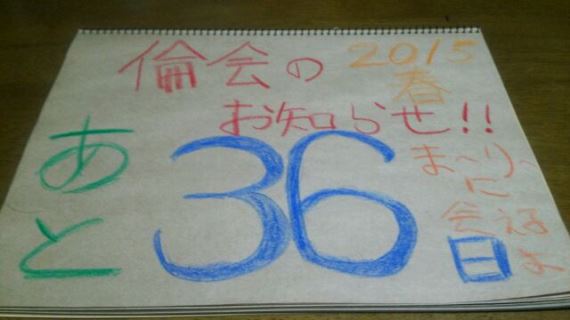 倫会の
2015
春
お知らせ!!
あと
36
日
まーりぃ
に
会える
よ